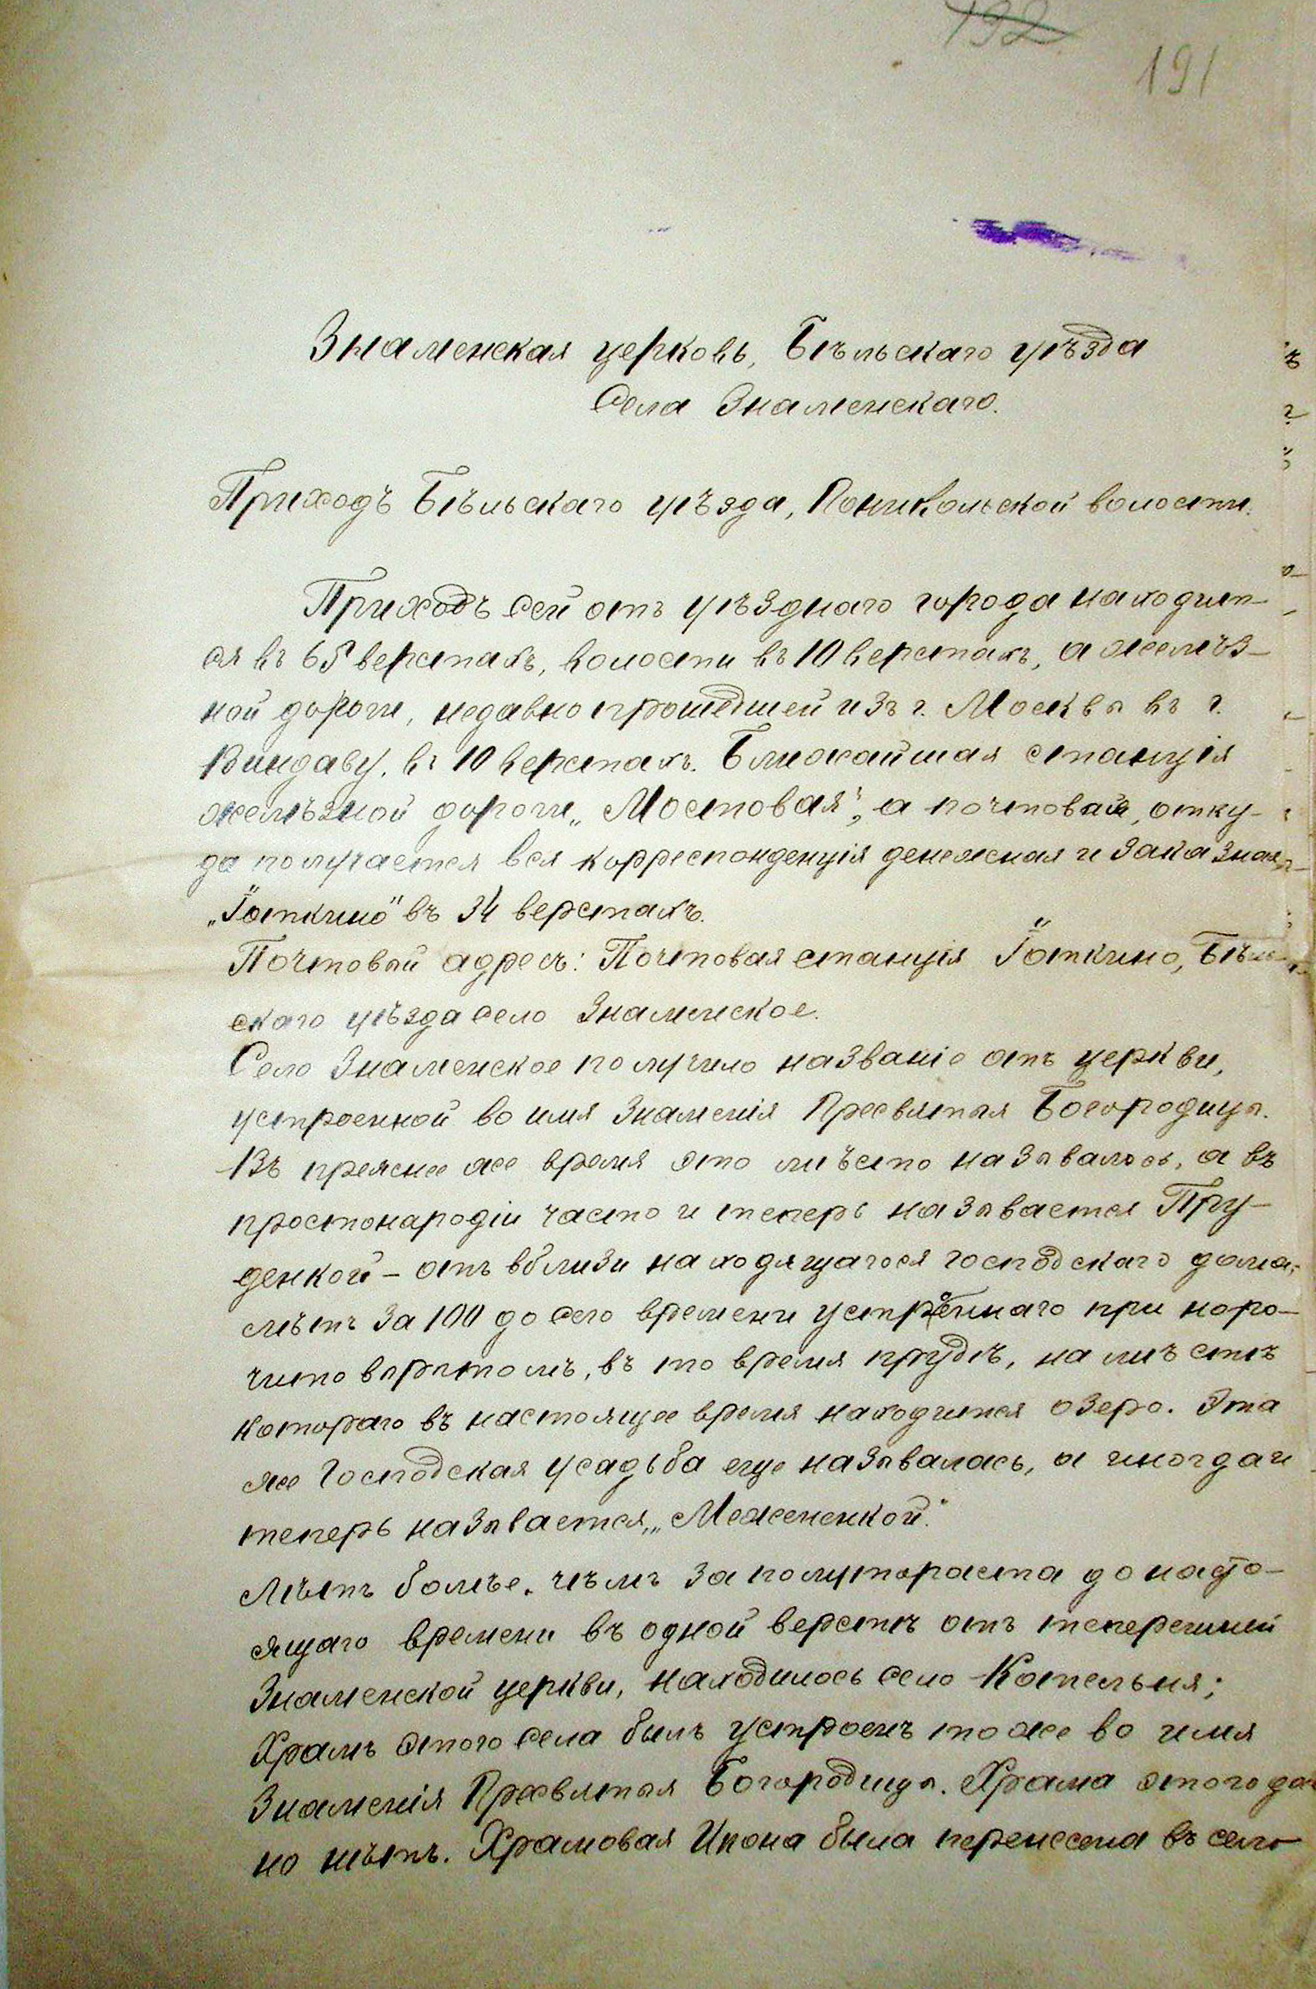 192
191
Знаменская церковь, Бѣльскаго уѣзда
Села Знаменскаго.
Приходъ Бѣльскаго уѣзда, Поникольской волости.
Приходъ сей отъ уѣзднаго города находит-
ся въ 65 верстахъ, волости въ 10 верстахъ, а желѣз-
ной дороги, недавно прошедшей изъ г. Москвы въ г.
Виндаву, въ 10 верстахъ. Ближайшая станція
желѣзной дороги „Мостовая", а почтовая, отку-
да получается вся корреспонденція денежная и заказная
въ 34 верстахъ.
Почтовый адресъ: Почтовая станція Бѣль-
скаго уѣзда село Знаменское.
Село Знаменское получило названіе отъ церкви,
устроенной во имя Знаменія Пресвятыя Богородицы.
Въ прежнее же время это мѣсто называлось, а въ
простонародіи часто и теперь называется Пру-
денкой – отъ вблизи находящагося господскаго дома,
лѣтъ за 100 до сего времени устроеннаго при наро-
чито вырытомъ, въ то время прудѣ, на мѣстѣ
котораго въ настоящее время находится озеро. Эта
же Господская усадьба еще называлась, а иногда и
теперь называется „Меженкой".
Лѣтъ болѣе, чѣмъ за полутораста до насто-
ящаго времени въ одной верстѣ отъ теперешней
Знаменской церкви, находилось село Котельня;
Храмъ этого села былъ устроенъ тоже во имя
Знаменія Пресвятыя Богородицы. Храма этого дав-
но нѣтъ. Храмовая Икона была перенесена въ село